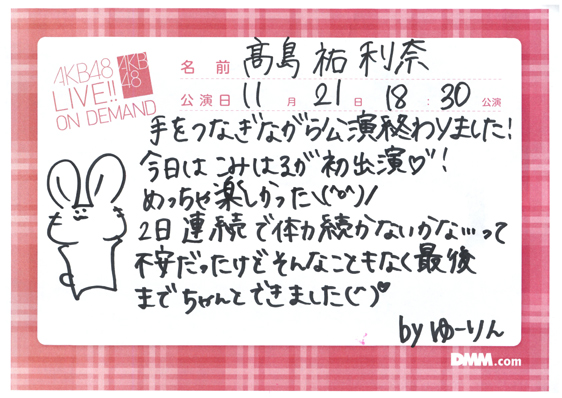 AKB48
LIVE!!
ON DEMAND
AKB
48
名 前 髙島 祐利奈
公演日 11 月 21 日 18 : 30 公演
手をつなぎながら公演終わりました!
今日は こみはるが 初出演♡!
めっちゃ楽しかった\(^o^)/
2日 連続で体力続かないかな…って
不安だったけどそんなこともなく最後
までちゃんとできました(^^)♥
by ゆーりん
DMM.com